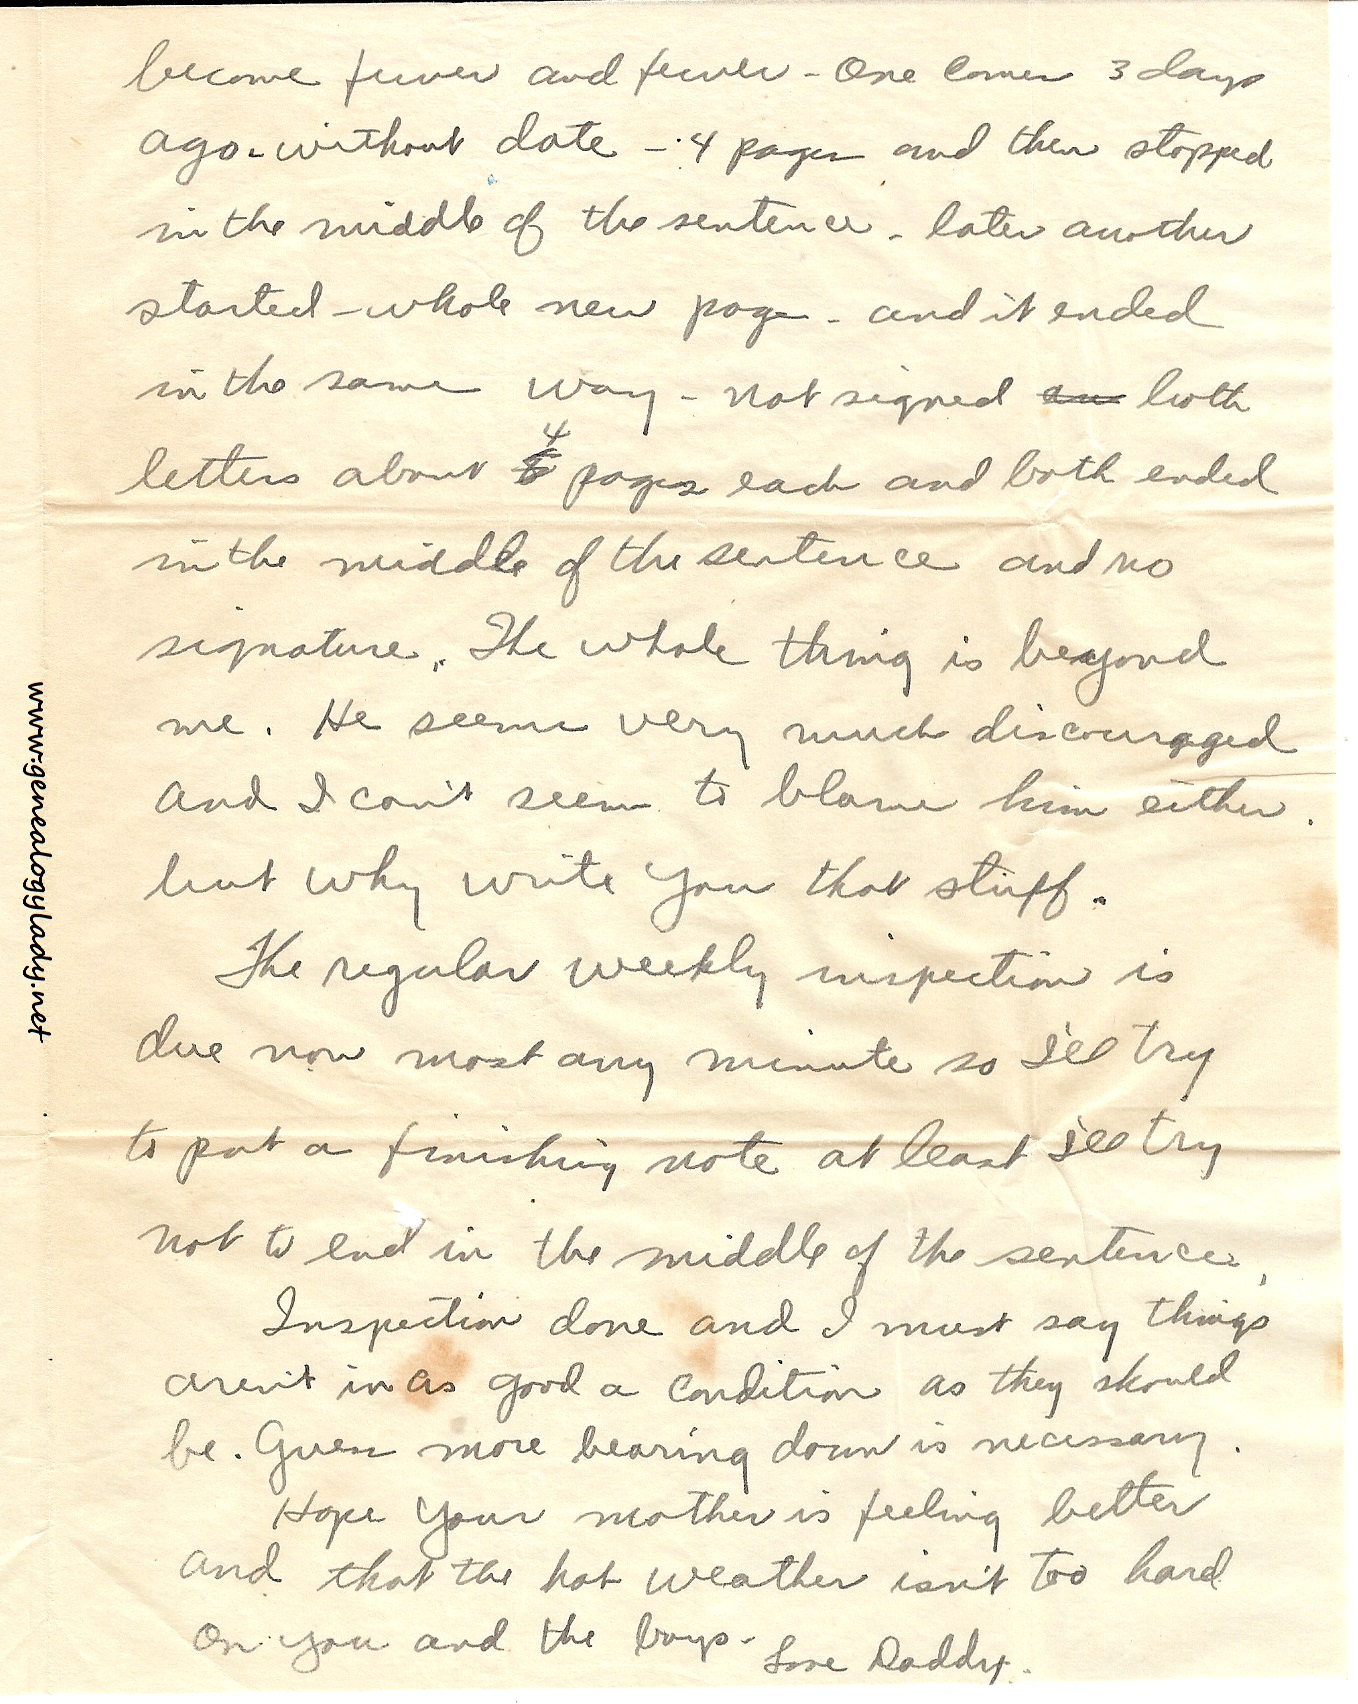 become fewer and fewer - One comes 3 days
ago - without date - 4 pages and then stopped
in the middle of the sentence - later another
started - whole new page - and it ended
in the same way - not signed an both
letters about 4 pages each and both ended
in the middle of the sentence and no
signature. The whole thing is beyond
me. He seems very much discouraged
and I can't seem to blame him either.
but why write you that stuff.
The regular weekly inspection is
due now most any minute so I'll try
to put a finishing note at least I'll try
not to end in the middle of the sentence.
Inspection done and I must say things
aren't in as good a condition as they should
be. Guess more bearing down is necessary.
Hope your mother is feeling better
and that the hot weather isn't too hard
on you and the boys -
Love Daddy.
www.genealogylady.net